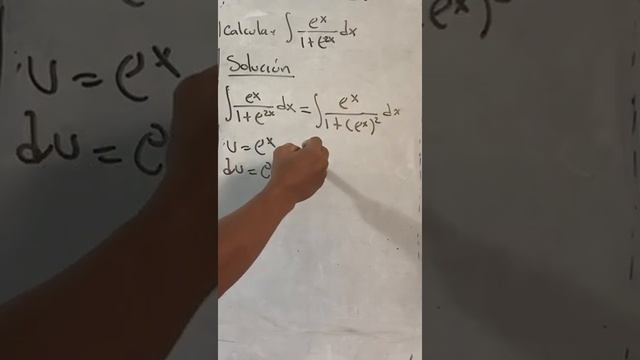 Calcular ∫ e^x/(1+e^{2x}) dx
Solución
∫ e^x/(1+e^{2x}) dx = ∫ e^x/(1+(e^x)^2) dx
u = e^x
du = e